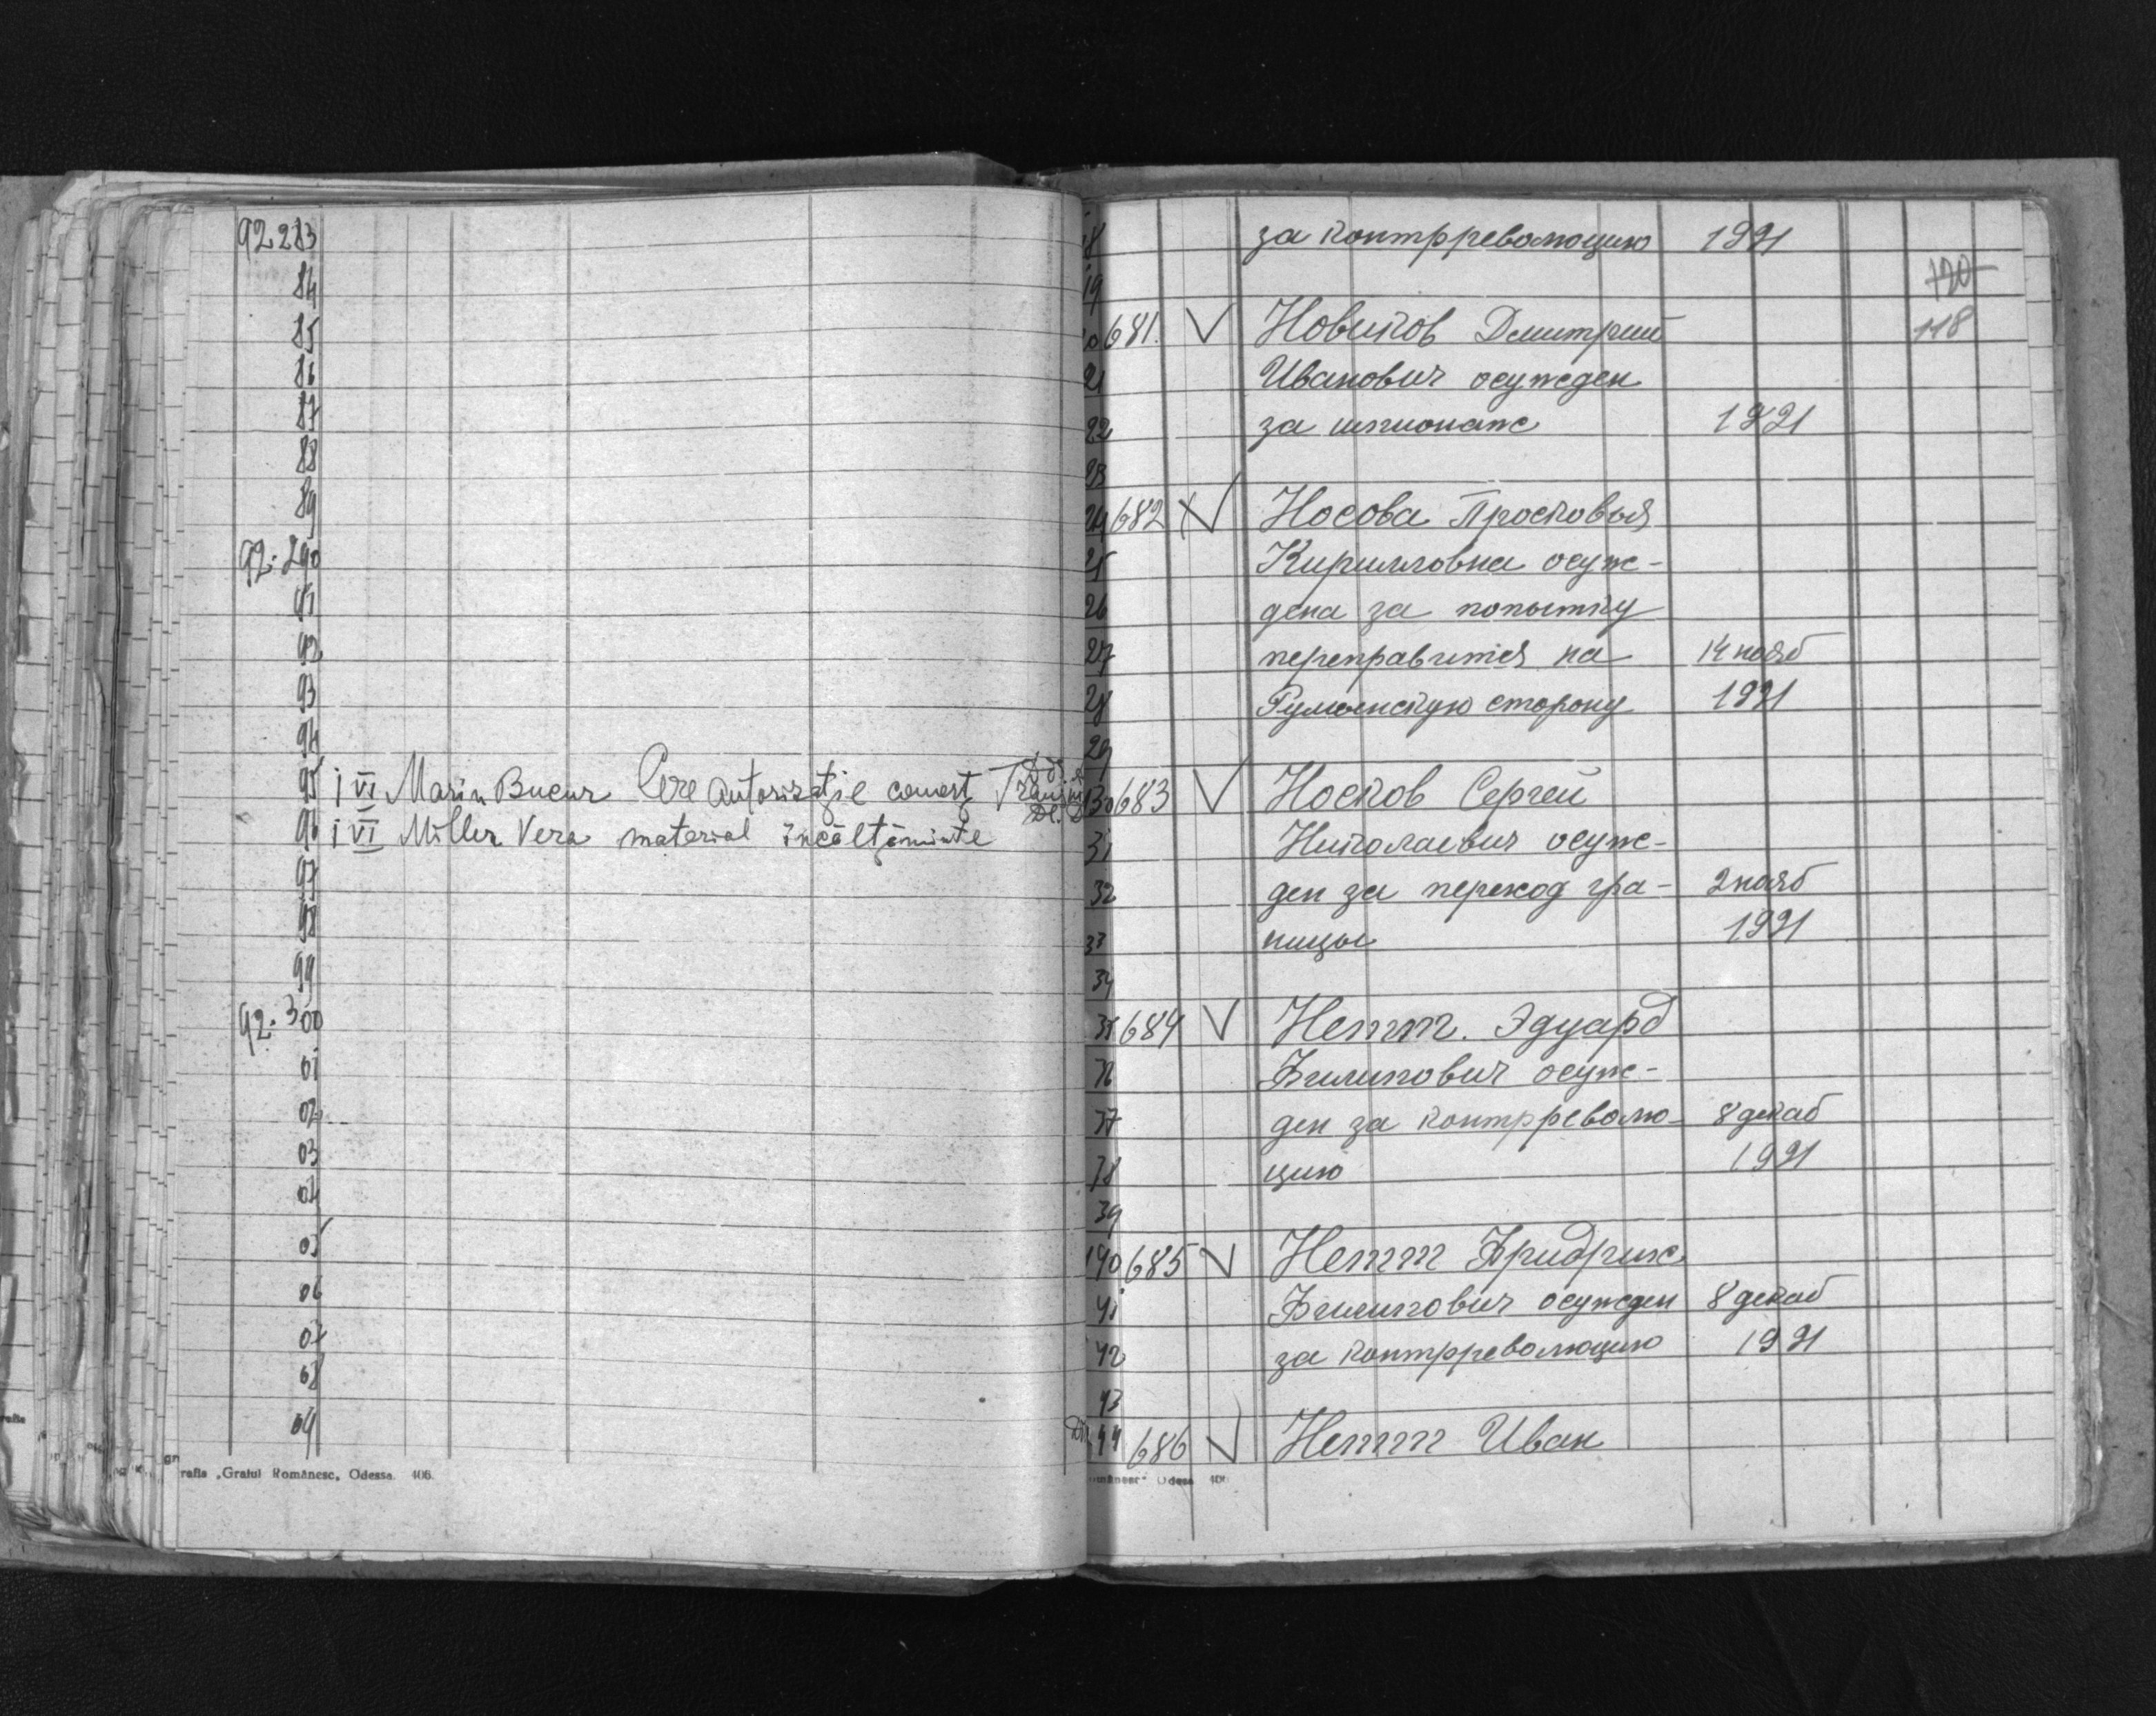 92283
84
85
86
87
88
89
92.290
91
92
93
94
95 i VI Marin Bucur Cere autorizatie comerț
96 i VI Miller Vera material încălțăminte
97
98
99
92.300
01
02
03
04
05
06
07
08
09
rafia „Graiul Românesc„ Odessa. 406.
18 за контрреволюцию 1921
19
120
118
681. V Новиков Дмитрий
21 Иванович осужден
22 за шпионаж 1921
23
24 682 V Носова Просковья
25 Кирилловна осуж-
26 дена за попытку
27 переправится на 14 нояб
28 Румынскую сторону 1921
29
30 683 V Носков Сергей
31 Николаевич осуж-
32 ден за переход гра- 2 нояб
33 ницы 1921
34
35 684 V Нетт. Эдуард
36 Филипович осуж-
37 ден за контрреволю- 8 декаб
38 цию 1921
39
140 685 V Нетт Фридрих
41 Филипович осужден 8 декаб
42 за контрреволюцию 1921
43
44 686 V Нетт Иван
omânesc" Odesa 406